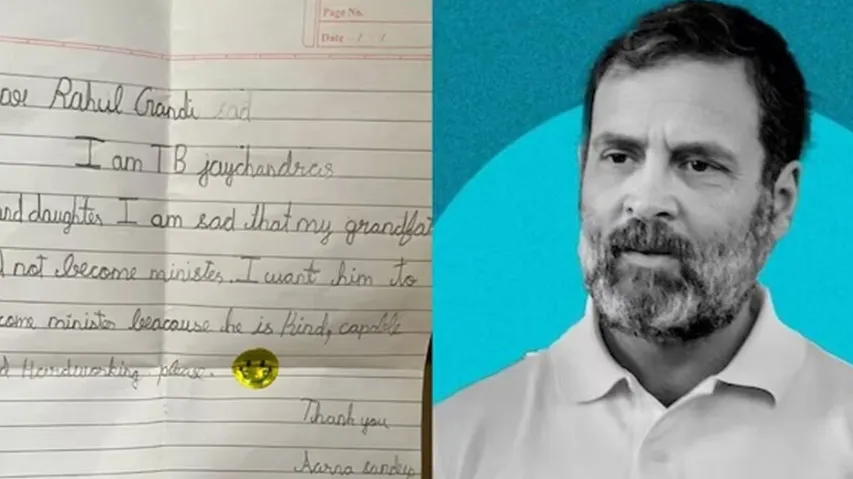 Page No.
Date / /
Rahul Gandi sad
I am TB jaychandras
nd daughter I am sad that my grandfat
not become minister. I want him to
come minister beacause he is Kind, capable
d Hardworking please.
Thank you
Aarna Sandeep